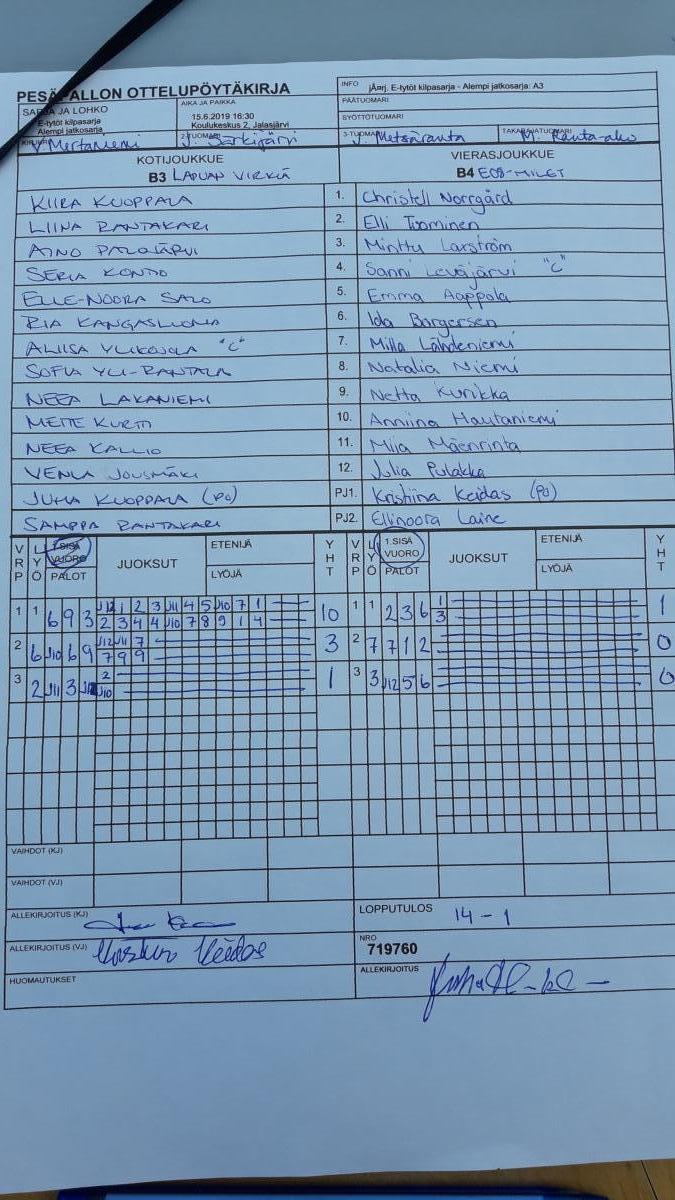 PESÄPALLON OTTELUPÖYTÄKIRJA
INFO jÄrj. E-tytöt kilpasarja - Alempi jatkosarja: A3
SARJA JA LOHKO
E-tytöt kilpasarja
Alempi jatkosarja
AIKA JA PAIKKA
15.6.2019 16:30
Koulukeskus 2, Jalasjärvi
PÄÄTUOMARI
SYÖTTÖTUOMARI
V. Mertaniemi
2-TUOMARI J. Särkijärvi
3-TUOMARI J. Metsäranta
TAKARAJATUOMARI M. Ranta-aho
KOTIJOUKKUE
B3 LAPUAN VIRKIÄ
VIERASJOUKKUE
B4 EC08-MILET
KIIRA KUOPPALA 1. Christell Norrgård
LIINA RANTAKARI 2. Elli Tuominen
AINO PALOJÄRVI 3. Minttu Laxström
SERIA KONTIO 4. Sanni Leväjärvi "C"
ELLE-NOORA SALO 5. Emma Aappola
RIA KANGASLUOMA 6. Ida Borgersen
ALIISA YLIKOJOLA "C" 7. Milla Lähdeniemi
SOFIA YLI-RANTALA 8. Natalia Niemi
NEEA LAKANIEMI 9. Netta Kurikka
METTE KURTTI 10. Anniina Hautaniemi
NEEA KALLIO 11. Miia Mäenrinta
VENLA JOUSMÄKI 12. Julia Pulakka
JUHA KUOPPALA (PJ) PJ1. Kristiina Keidas (PJ)
SAMPPA RANTAKARI PJ2. Ellinoora Laine
VRP LYÖ 1.SISÄ VUORO PALOT JUOKSUT ETENIJÄ LYÖJÄ YHT VRP LYÖ 1.SISÄ VUORO PALOT JUOKSUT ETENIJÄ LYÖJÄ YHT
1 1 6 9 3 J12 1 2 3 J11 4 5 J10 7 1 10 1 1 2 3 6 1 1
2 3 4 4 J10 7 8 9 1 4 3
2 6 J10 6 9 J12 J11 7 3 2 7 7 1 2 0
7 9 9
3 2 J11 3 2 1 3 3 J12 5 6 0
J10
VAIHDOT (KJ)
VAIHDOT (VJ)
ALLEKIRJOITUS (KJ)
LOPPUTULOS 14 - 1
ALLEKIRJOITUS (VJ) Keidas
NRO
719760
HUOMAUTUKSET
ALLEKIRJOITUS